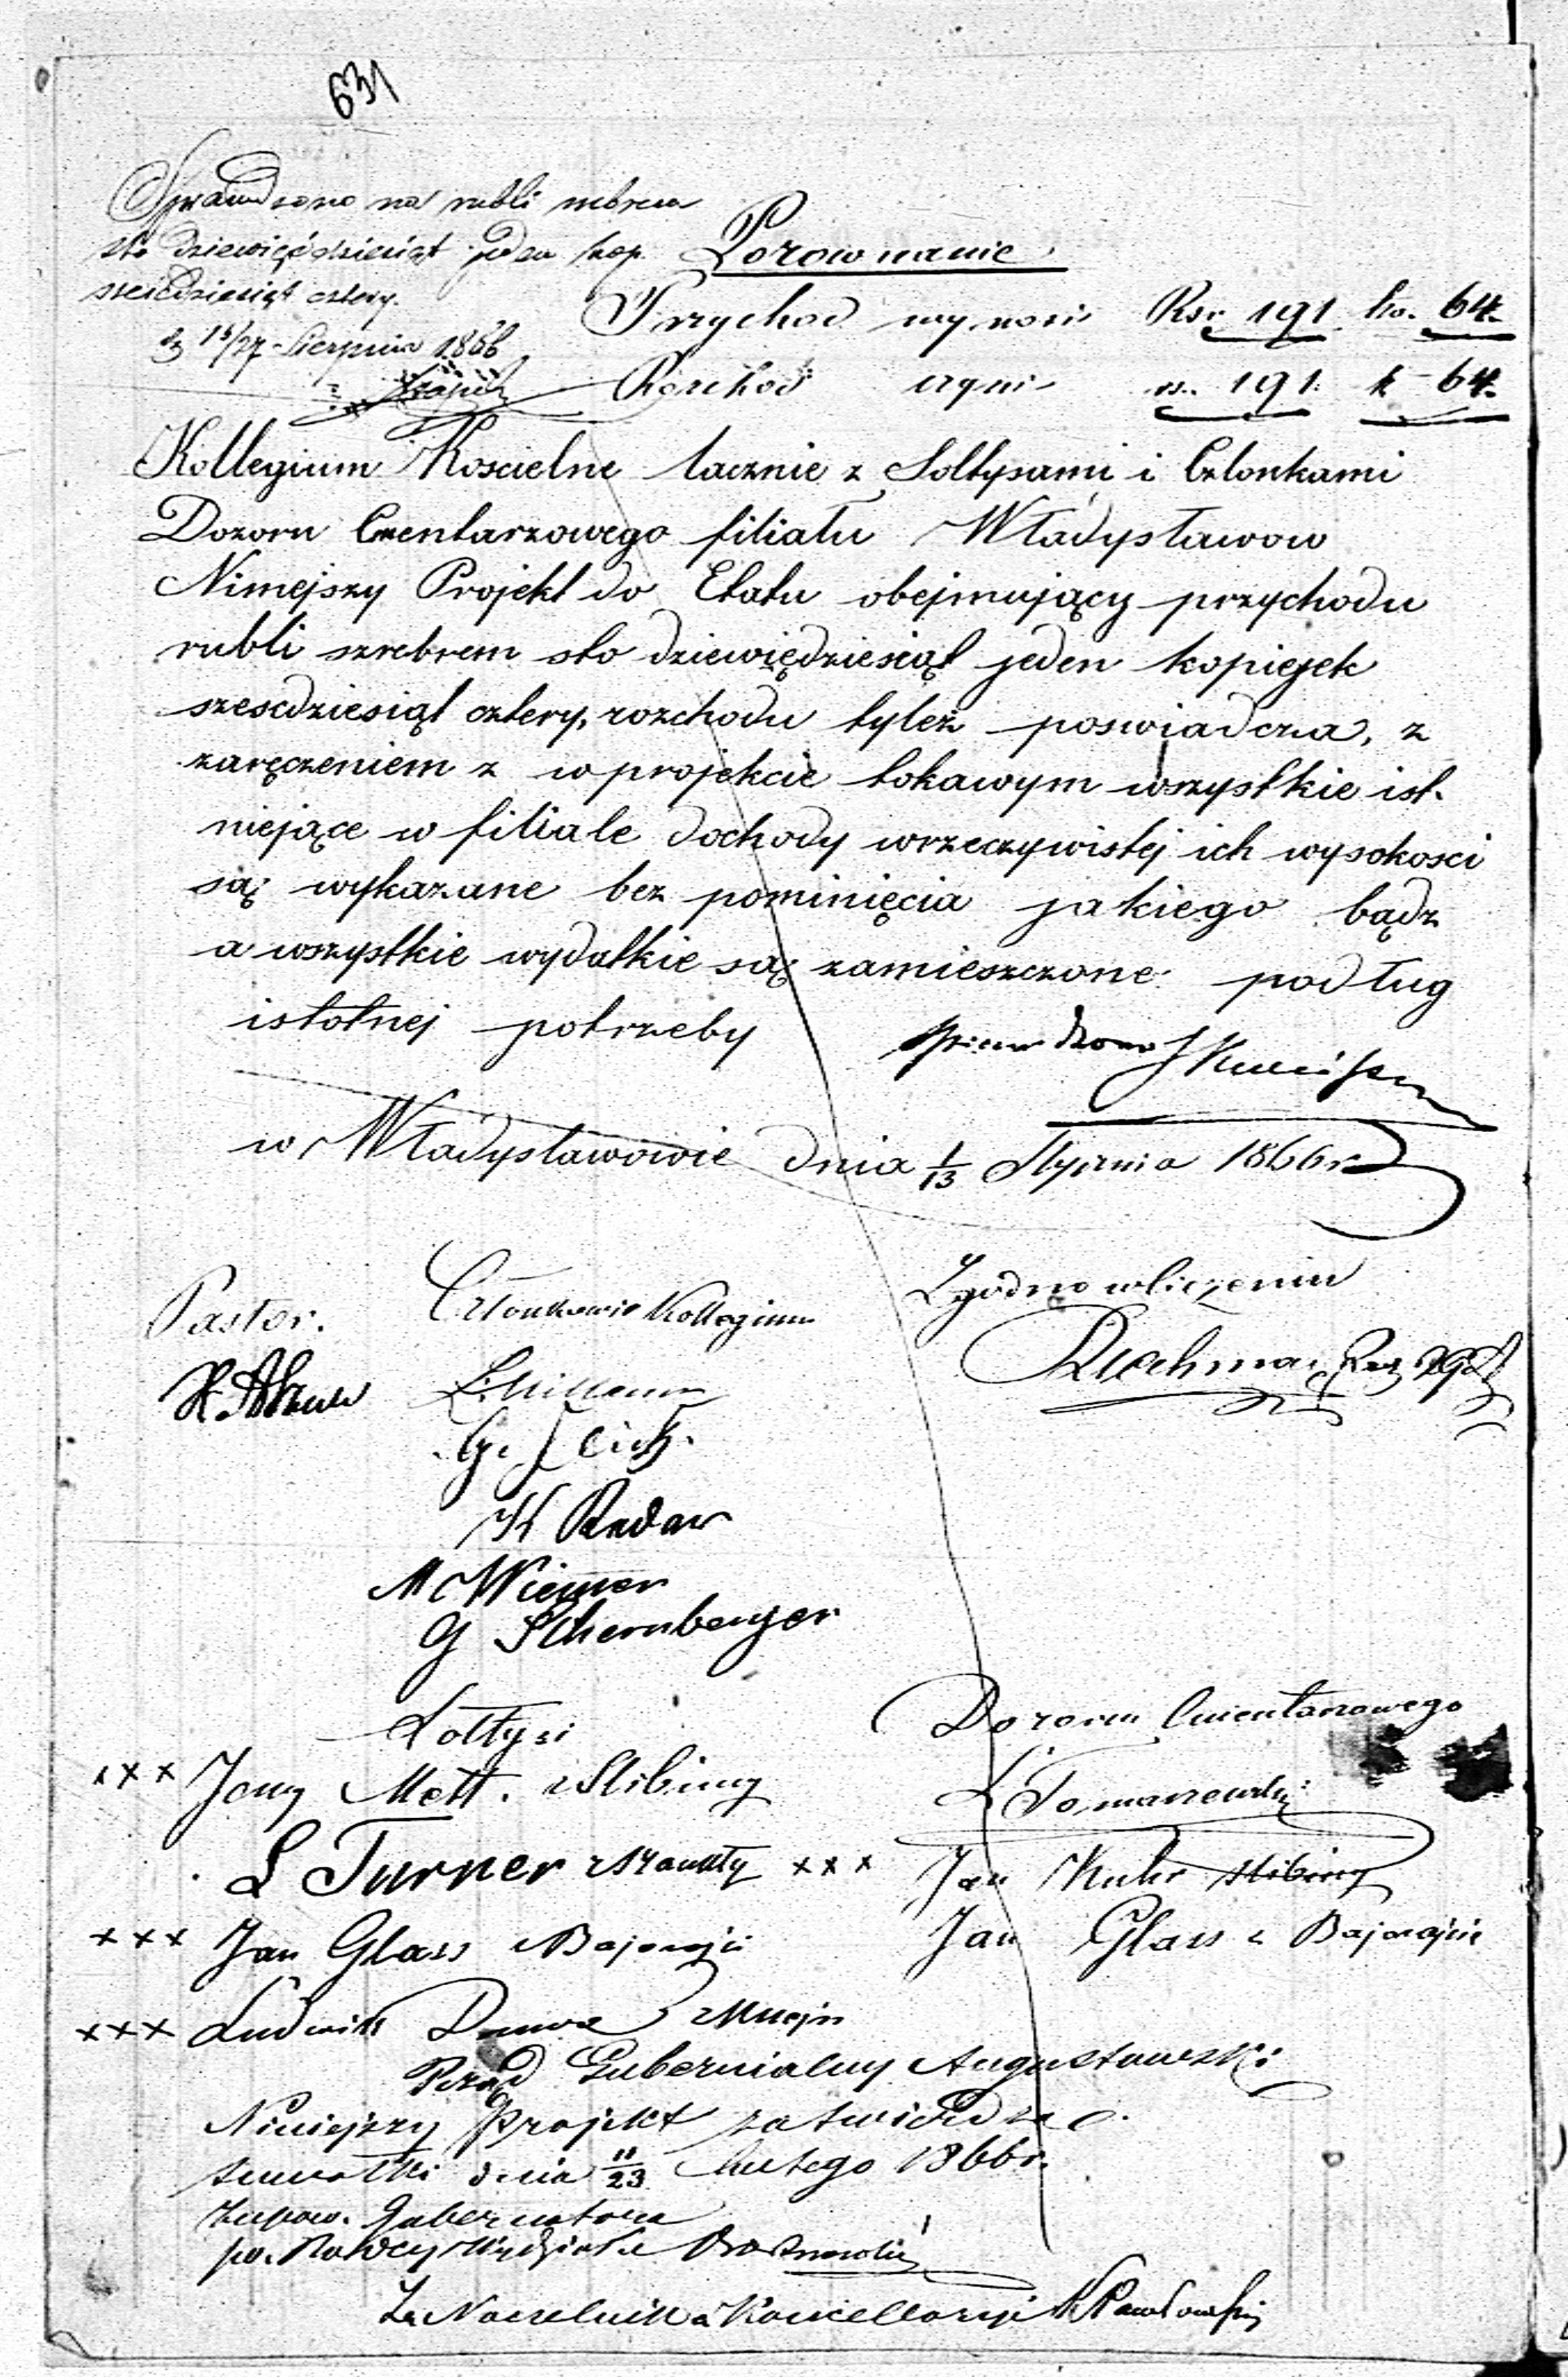 631
Sprawdzono na rubli srebrem
sto dziewięćdziesiąt jeden kop.
sześćdziesiąt cztery.
d. 15/27 Sierpnia 1866
Porownanie
Przychod wynosi Rsr. 191 ko. 64.
Rozchod czyni rs. 191. k 64.
Kollegium Koscielne łacznie z Sołtysami i Członkami
Dozoru Cmentarzowego filiału Władysławow
Niniejszy Projekt do Etatu obejmujący przychodu
rubli szrebrem sto dziewiędziesiąt jeden kopiejek
szescdziesiąt cztery, rozchodu tyleż poswiadcza, z
zaręczeniem z w projekcie tokawym wszystkie ist-
niejące w filiale dochody wrzeczywistej ich wysokosci
są wykazane bez pominięcia jakiego bądz
a wszystkie wydatkie są zamieszczone podług
istotnej potrzeby
Sprawdzono
w Władysławowie dnia 1/13 Stycznia 1866 r
Pastor. Członkowie Kollegium
Zgodno w liczeniu
G.
K Radaw
M Wiemer
G Schernberger
Sołtysi
Dozoru Cmentarzowego
xxx Jony Mett. z Stibiny
L Tomaszewski
L Turner z
xxx Jan Kuhr Stibiny
xxx Jan Glass z
Jan Glass z
xxx Ludwik
Rząd Gubernialny Augustowski
Niniejszy Projekt zatwierdza.
Suwałki dnia 11/23 Lutego 1866 r.
Zupow. Gubernatora
po. Radcy Wydziału
Za Naczelnika Kancellaryi Pawłowski